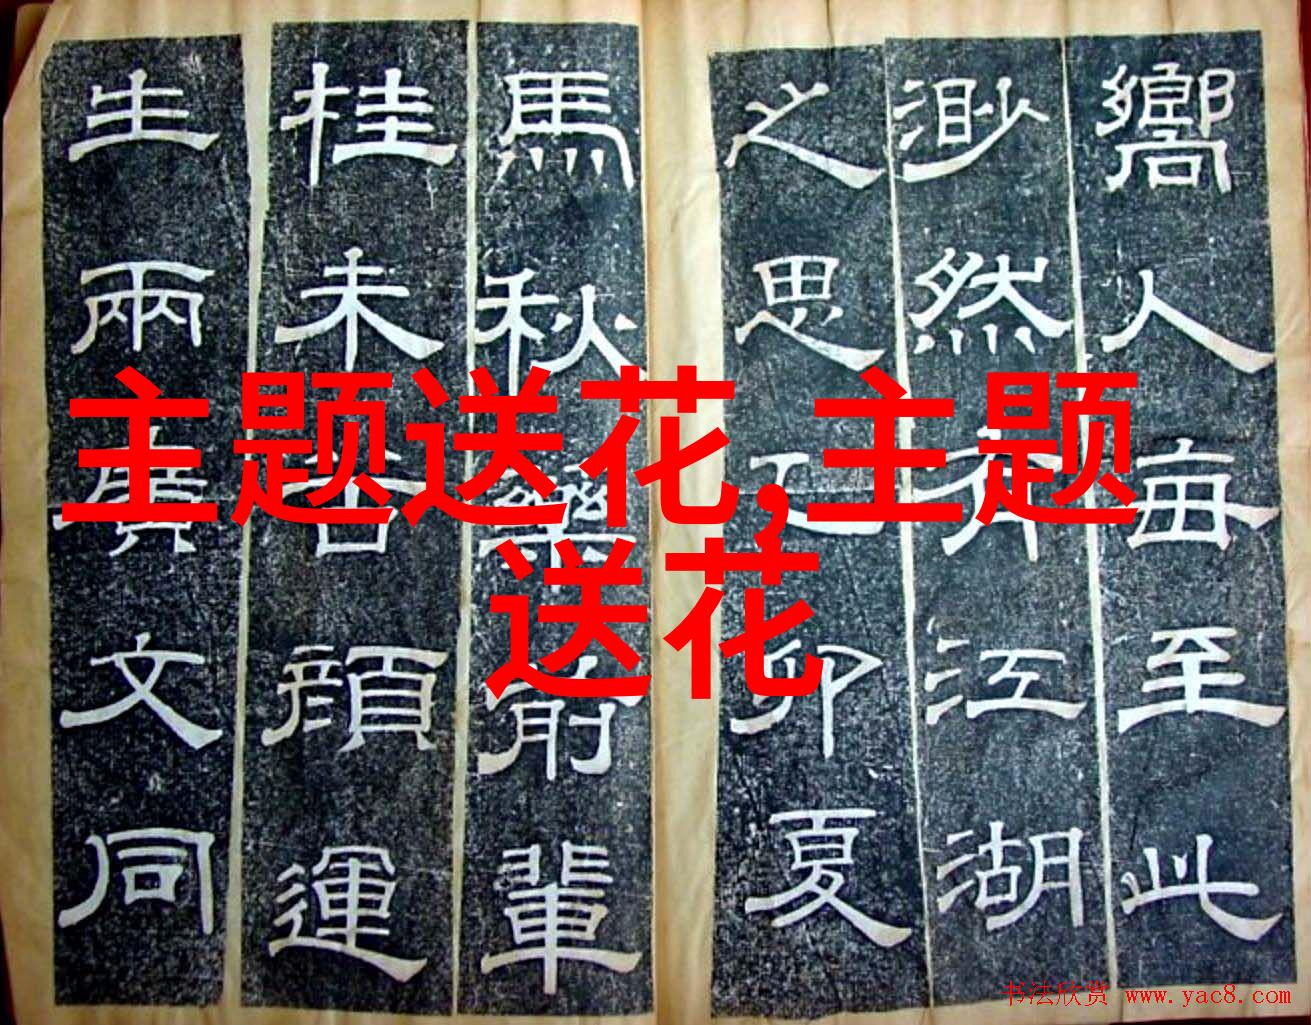 嚮人每至此
渺然江湖
之思乙卯夏
馬秋藥前輩
桂未谷顏運
生兩廣文同
主题送花,主题
送花
书法欣赏 www.yac8.com